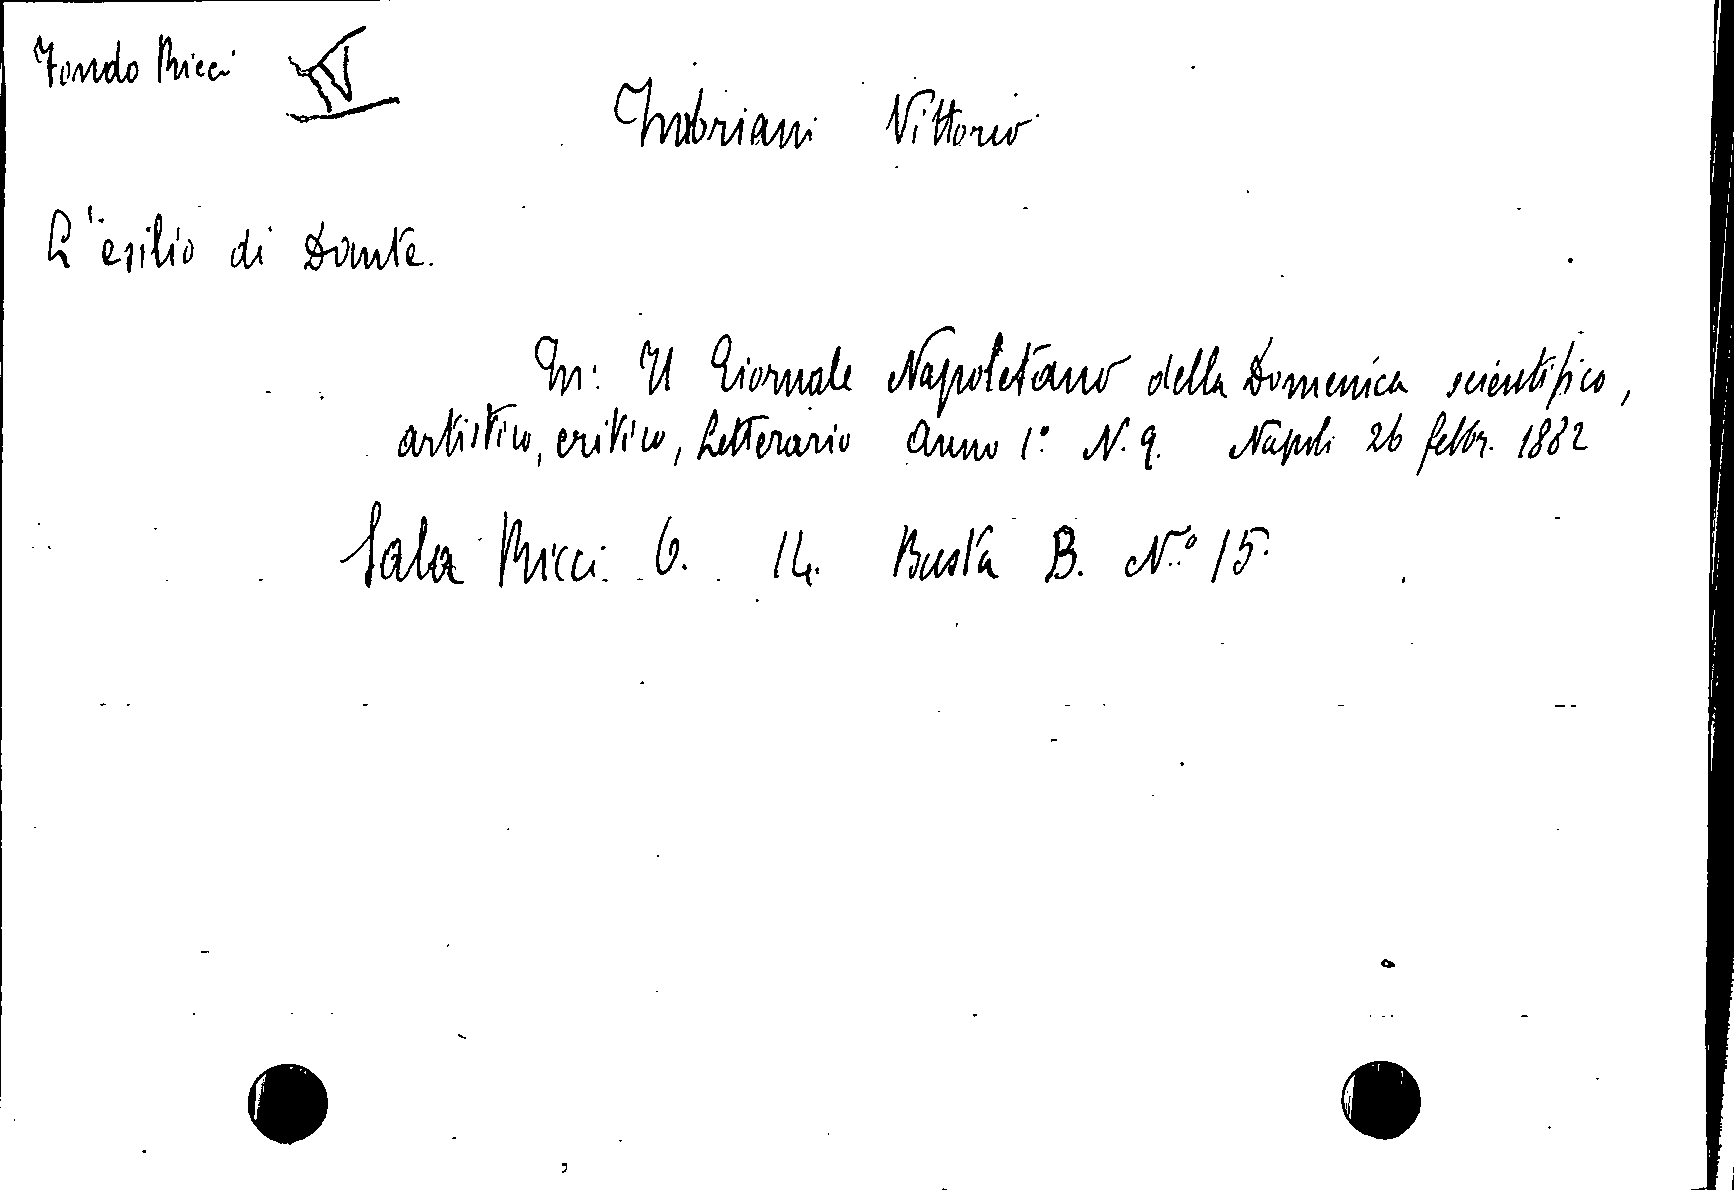 Fondo Ricci IV
Imbriani Vittorio
L'esilio di Dante.
In: Il Giornale Napoletano della Domenica scientifico,
artistico, critico, letterario Anno 1° N. 9. Napoli 26 febbr. 1882
Sala Ricci 6. 14. Busta B. N.° 15.